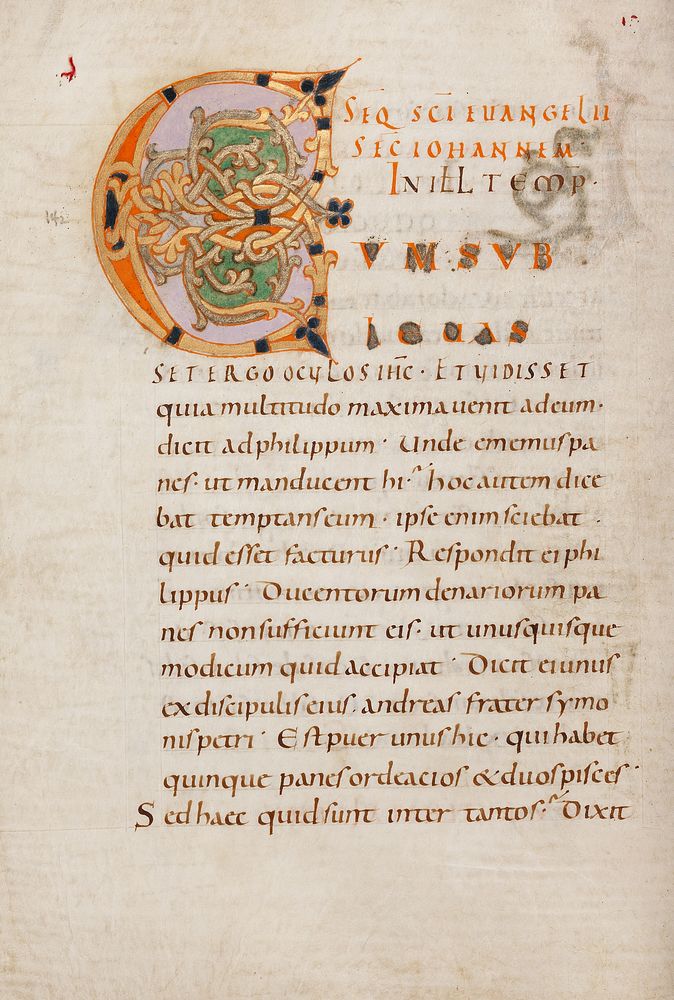 SEQ SCI EUANGELII
SEC IOHANNEM
IN ILL TEMP·
CUM SUB
LEUAS
SET ERGO OCULOS IHC · ET UIDISSET
quia multitudo maxima uenit ad eum·
dicit ad philippum · Unde ememus pa
nes · ut manducent hi · hoc autem dice
bat temptans eum · ipse enim sciebat ·
quid esset facturus · Respondit ei phi
lippus · Ducentorum denariorum pa
nes non sufficiunt eis · ut unusquisque
modicum quid accipiat · Dicit ei unus
ex discipulis eius · andreas frater symo
nis petri · Est puer unus hic · qui habet
quinque panes ordeacios & duos pisces ·
Sed haec quid sunt inter tantos · Dixit